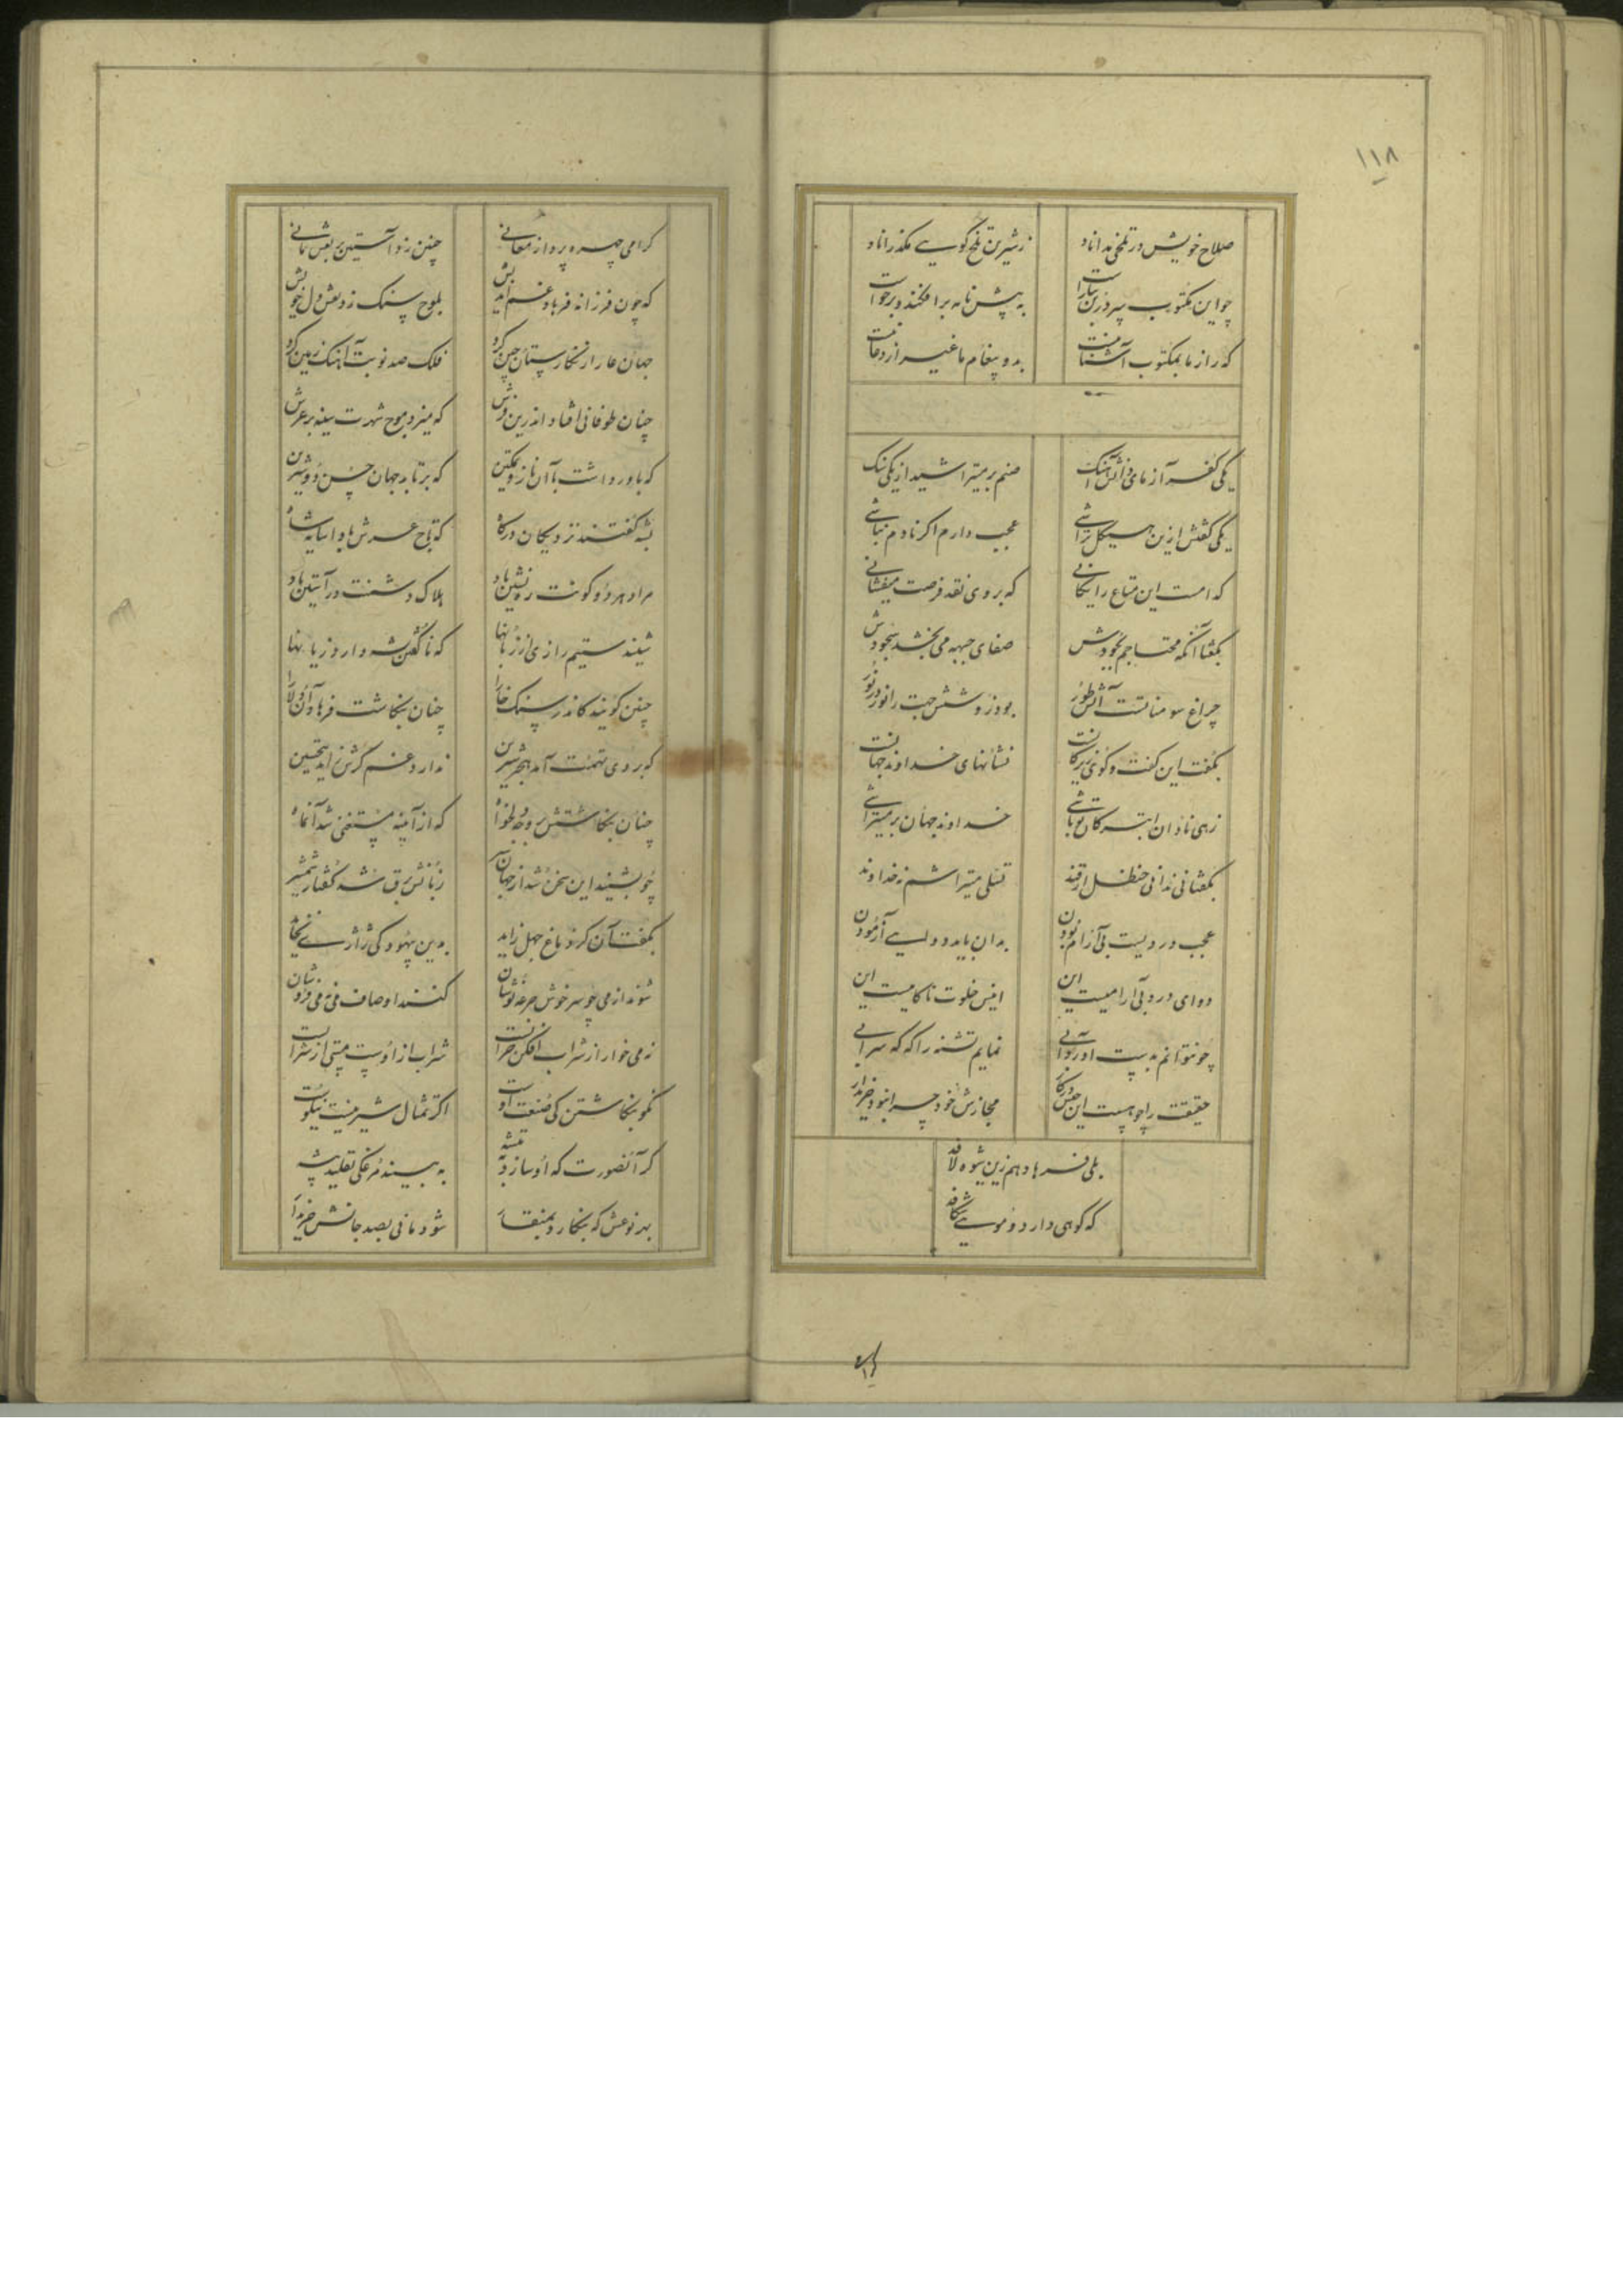 ۱۱۸
صلاح خویش در تلخی نداناد
ز شیرین تلخ گویی مگذراناد
چو این مکتوب
به پیش نامه برافکند و برخواست
که راز ما بمکتوب آشنا نیست
بدو پیغام ما غیر از دعا نیست
یکی کفر آزمای
صنم بر میتراشید از یکی سنگ
یکی گفتش ازین هیکل تراشی
عجب دارم اگر نادم نباشی
که است این متاع رایگانی
که بروی نقد فرصت میفشانی
بگفتا آنکه محتاجم بجودش
صفای جبهه می بخشد سجودش
چراغ سومناتست آتش طور
بود زو شش جهت را نور در نور
بگفت این گفت و گوی
نشانهای خداوند جهانست
زهی نادان
خداوند جهان بر میتراشی
بگفتا نی ندانی حنظل از قند
تسلی میتراشم نه خداوند
عجب دردیست بی آرام بودن
بدان باید دوایی آزمودن
دوای درد بی آرامیست این
انیس خلوت ناکامیست این
چو نتوانم بدست آورد آبی
نمایم تشنه را گه گه سرابی
حقیقت را چو هست این
مجازش خود چرا نبود خریدار
بلی فرهاد هم زین شیوه لافد
که کوهی دارد و مویی شکافد
گرامی چهره پرداز معانی
چنین زد آستین بر نقش مانی
که چون فرزانه فرهاد غم اندیش
بلوح سنگ زد نقش دل خویش
جهان را از نگارستان چین کرد
فلک صد نوبت آهنگ زمین کرد
چنان طوفانی افتاد اندرین فرش
که میزد موج شهرت سینه بر عرش
که باور داشت با آن ناز و تمکین
که برتابد جهان حسن دو شیرین
بشه گفتند نزدیکان درگاه
که تاج عرش بادا سایه شاه
مراد هر دو کونت ره نشین باد
هلاک دشمنت در آستین باد
شنیدستیم رازی از زبانها
که ناگفتن شه دارد زیانها
چنین گویند کاندر سنگ خارا
چنان بنگاشت فرهاد آن دلارا
که بروی تهمت آمد هجر شیرین
ندارد غم گرش
چنان بنگاشتش بر وجه دلخواه
که از آیینه مستغنی شد آن ماه
چو بشنید این سخن شد از جهان سیر
زبانش برق شد گفتار شمشیر
بگفت آن کز دماغ جهل زاید
بدین بیهودگی ژاژی نخاید
شوند از می چو سرخوش جرعه نوشان
کنند اوصاف می نه می فروشان
نه می خوار از شراب افکن خرابست
شراب از اوست مستی از شرابست
نگو بنگاشتن کی صنعت اوست
اگر تمثال شیرینست نیکوست
گر آنصورت که او سازد به تیشه
به بیند مرغکی تقلید پیشه
بهر نوعش که بنگارد بمنقار
شود مانی بصد جانش خریدار